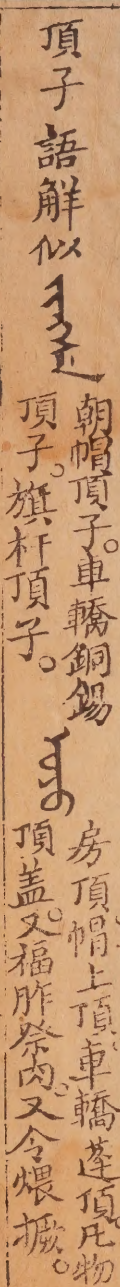 頂子語觧似
ᠵᡳᠩᠰᡝ
朝帽頂子。車轎銅錫
頂子。旗杆頂子。
ᠣᠶᠣ
房頂。帽上頂。車轎蓬頂。凡物
頂盖。又福胙祭肉。又令煨撅。